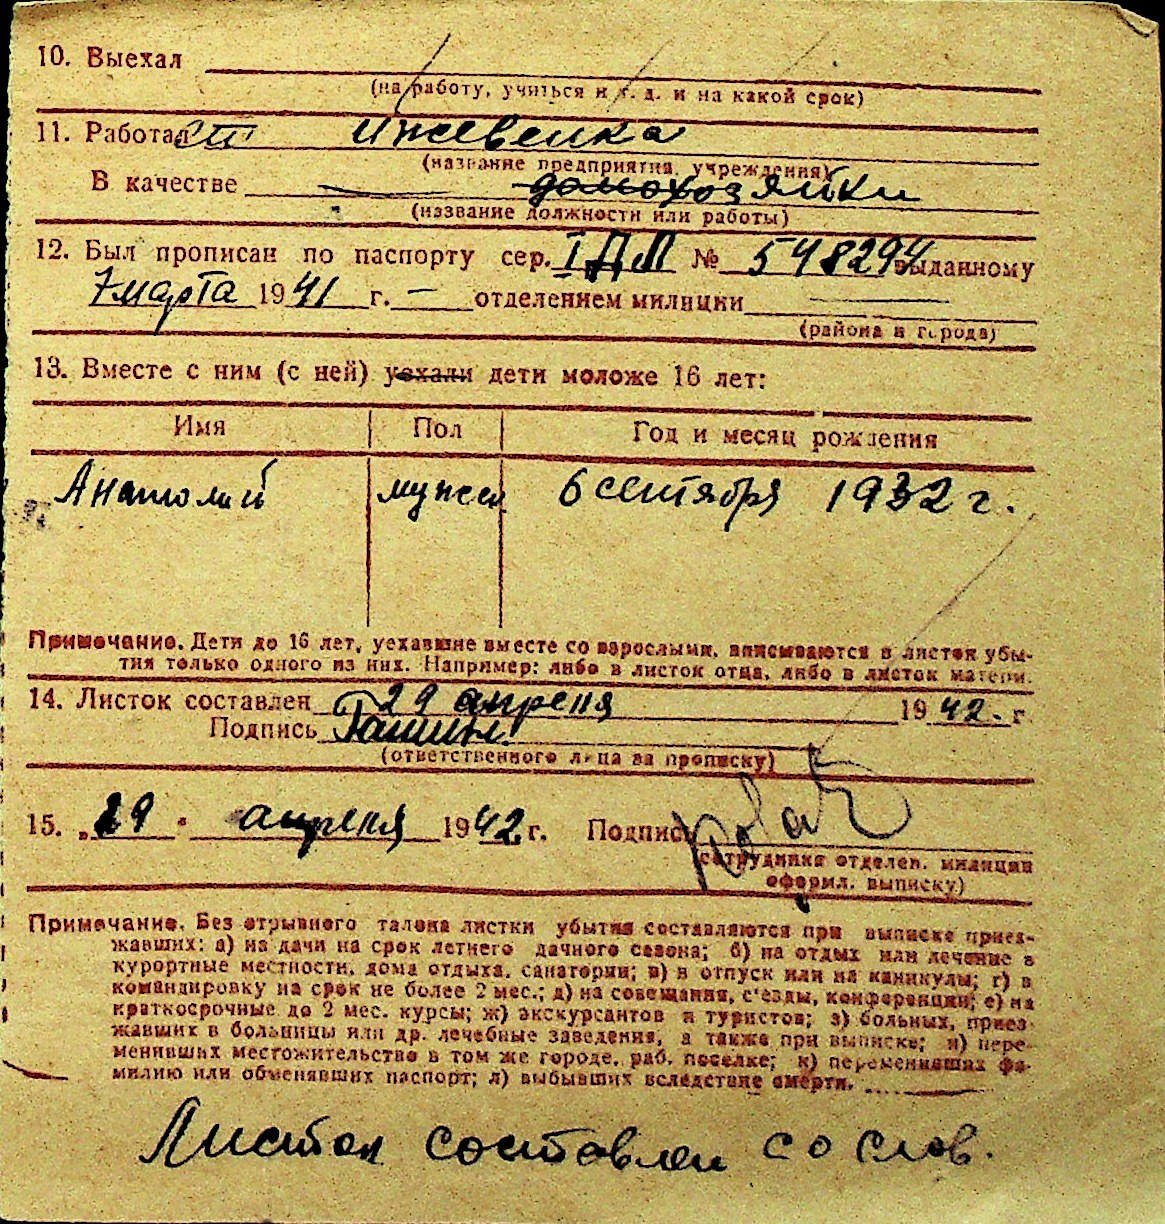 10. Выехал
(на работу, учиться и т. д. и на какой срок)
11. Работал ст иждвенка
(название предприятия, учреждения)
В качестве домохозяйки
(название должности или работы)
12. Был прописан по паспорту сер. IДЛ № 548294 выданному
7 марта 1941 г. — отделением милиции
(района и города)
13. Вместе с ним (с ней) уехали дети моложе 16 лет:
Имя Пол Год и месяц рождения
Анатолий мужск 6 сентября 1932 г.
Примечание. Дети до 16 лет, уехавшие вместе со взрослыми, вписываются в листок убы-
тия только одного из них. Например: либо в листок отца, либо в листок матери.
14. Листок составлен 29 апреля 1942. г.
Подпись
(ответственного лица за прописку)
15. „29" апреля 1942 г. Подпись
сотрудника отделен. милиции
оформл. выписку)
Примечание. Без отрывного талона листки убытия составляются при выписке приез-
жавших: а) на дачи на срок летнего дачного сезона; б) на отдых или лечение в
курортные местности, дома отдыха, санатории; в) в отпуск или на каникулы; г) в
командировку на срок не более 2 мес.; д) на совещания, с'езды, конференции; е) на
краткосрочные до 2 мес. курсы; ж) экскурсантов и туристов; з) больных, приез-
жавших в больницы или др. лечебные заведения, а также при выписке; и) пере-
менивших местожительство в том же городе, раб. поселке; к) переменивших фа-
милию или обменявших паспорт; л) выбывших вследствие смерти.
Листок составлен со слов.